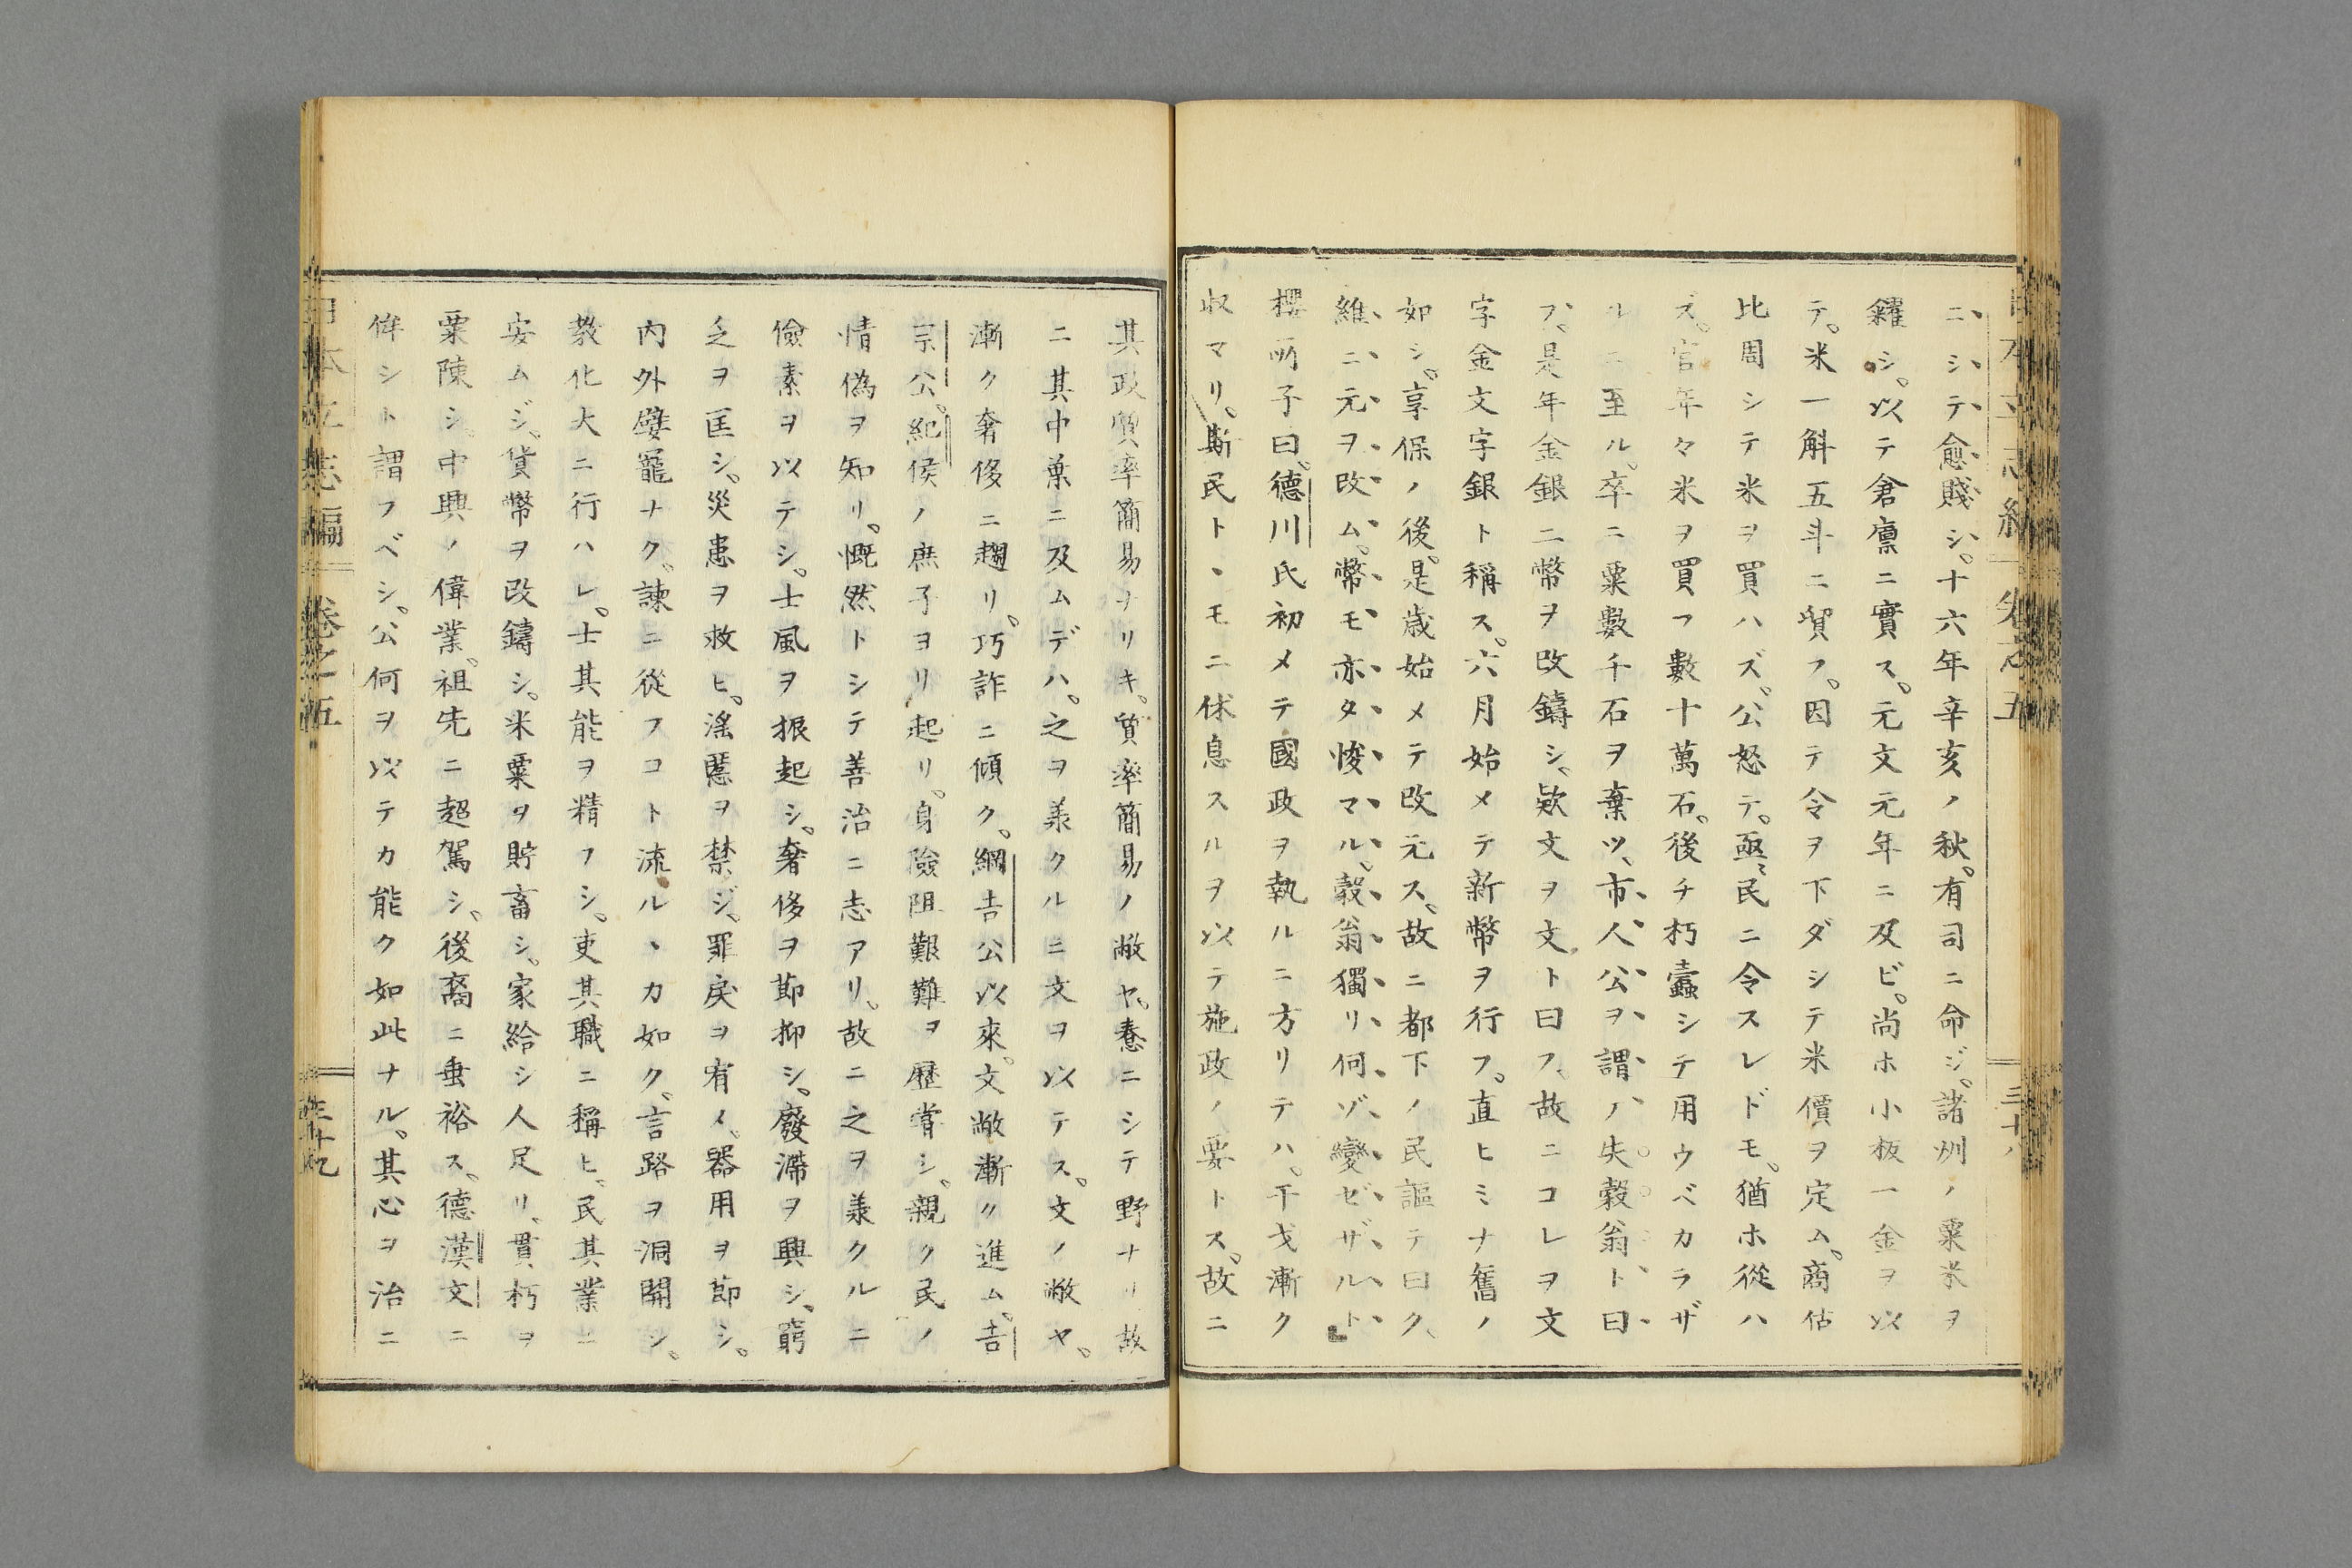 ニシテ愈賤シ。十六年辛亥ノ秋。有司ニ命ジ。諸州ノ粟米ヲ
糴シ。以テ倉廩ニ實ス。元文元年ニ及ビ。尚ホ小板一金ヲ以
テ。米一斛五斗ニ貿フ。因テ令ヲ下ダシテ米價ヲ定ム。商估
比周シテ米ヲ買ハズ。公怒テ。亟民ニ令スレドモ。猶ホ從ハ
ズ。官年々米ヲ買フ數十萬石。後チ朽蠹シテ用ウベカラザ
ルニ至ル。卒ニ粟數千石ヲ棄ツ、市人公ヲ謂ノ失穀翁ト曰
フ、是年金銀二幣ヲ改鑄シ、欵文ヲ文ト曰フ、故ニコレヲ文
字金文字銀ト稱ス。六月始メテ新幣ヲ行フ。直ヒミナ舊ノ
如シ。享保ノ後。是歳始メテ改元ス。故ニ都下ノ民謳テ曰ク、
維ニ元ヲ改ム。幣モ亦タ悛マル。穀翁獨リ何ゾ變ゼザルト
櫻所子曰。德川氏初メテ國政ヲ執ルニ方リテハ。干戈漸ク
収マリ。斯民トヽモニ休息スルヲ以テ施政ノ要トス。故ニ
日本立志編 卷之五 三十八
其政質率簡易ナリキ。質率簡易ノ敝ヤ。惷ニシテ野ナリ故
ニ其中葉ニ及ムデハ。之ヲ承クルニ文ヲ以テス。文ノ敝ヤ。
漸ク奢侈ニ趨リ。巧詐ニ傾ク。綱吉公以來。文敝漸ク進ム。吉
宗公。紀侯ノ庶子ヨリ起リ。身險阻艱難ヲ歷嘗シ。親ク民ノ
情偽ヲ知リ。慨然トシテ善治ニ志アリ。故ニ之ヲ承クルニ
儉素ヲ以テシ。士風ヲ振起シ。奢侈ヲ節抑シ。廢滯ヲ興シ、窮
乏ヲ匡シ。災患ヲ救ヒ。滛慝ヲ禁ジ。罪戻ヲ宥メ、器用ヲ節シ。
内外嬖寵ナク。諫ニ從フコト流ルヽカ如ク、言路ヲ洞開シ。
教化大ニ行ハレ。士其能ヲ精フシ、吏其職ニ稱ヒ、民其業ニ
安ムジ、貨幣ヲ改鑄シ。米粟ヲ貯畜シ。家給シ人足リ、貫朽ヲ
粟陳シ。中興ノ偉業。祖先ニ超駕シ、後裔ニ垂裕ス、德漢文ニ
侔シト謂フベシ。公何ヲ以テカ能ク如此ナル。其心ヲ治ニ
日本立志編 卷之五 三十九